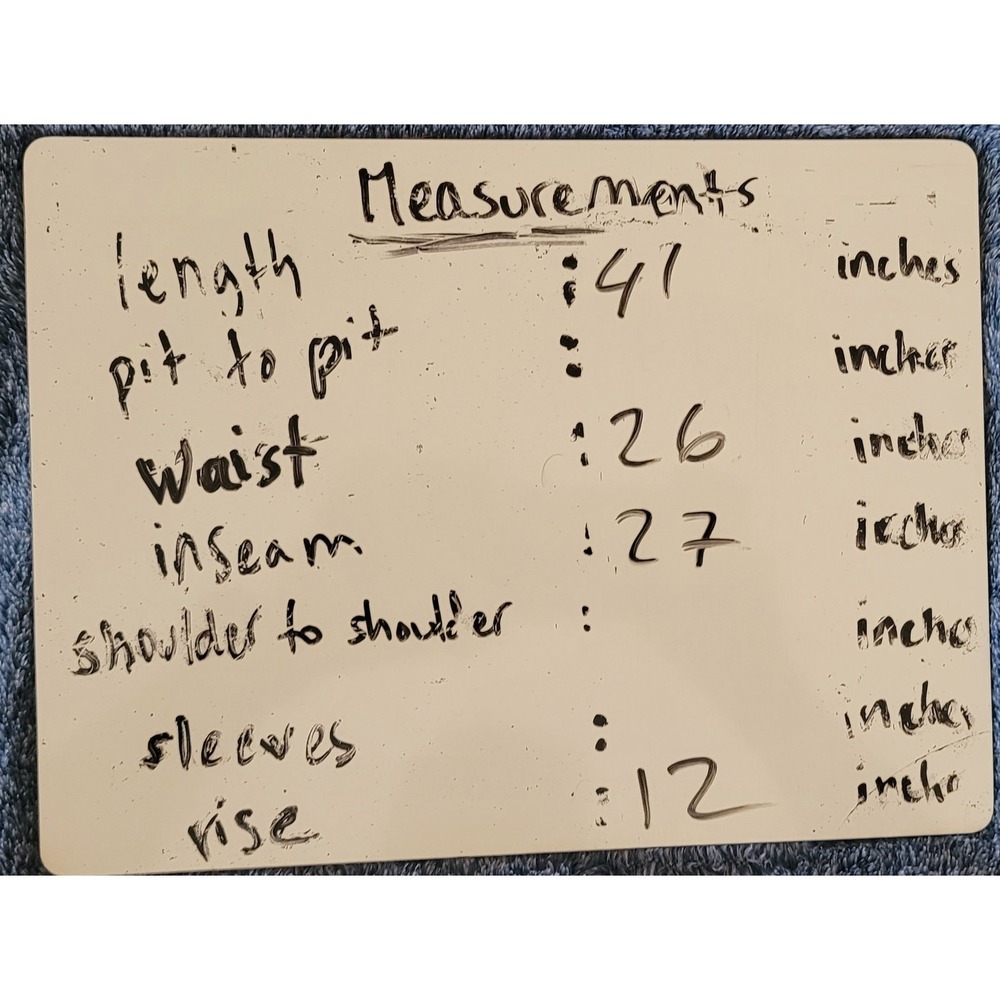 Measurements
length : 41 inches
pit to pit : inches
waist : 26 inches
inseam : 27 inches
shoulder to shoulder : inches
sleeves : inches
rise : 12 inches